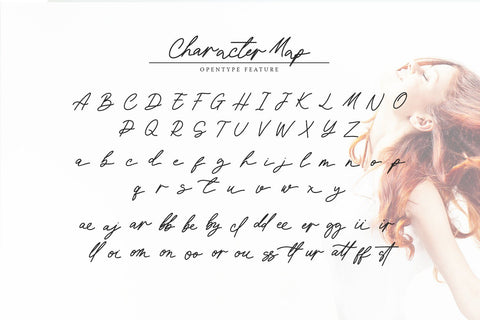 Character Map
OPENTYPE FEATURE
A B C D E F G H I J K L M N O
P Q R S T U V W X Y Z
a b c d e f g h i j l m n o p
q r s t u v w x y
ae aj ar bb be by cl dd ee er gg ii ir
ll oc om on oo or ou ss tt ur att ff st